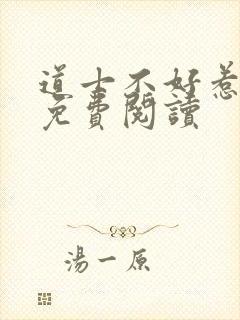 道士不好惹
免費閱讀
湯一原